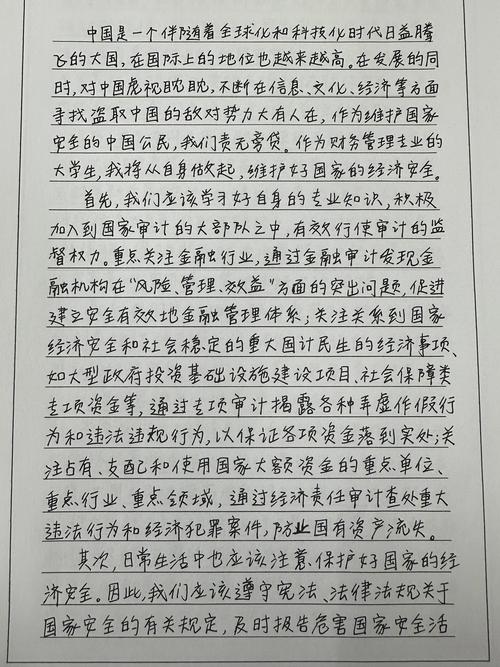 中国是一个伴随着全球化和科技化时代日益腾
飞的大国，在国际上的地位也越来越高。在发展的同
时，对中国虎视眈眈，不断在信息、文化、经济等方面
寻找盗取中国的敌对势力大有人在，作为维护国家
安全的中国公民，我们责无旁贷。作为财务管理专业的
大学生，我将从自身做起，维护好国家的经济安全。
首先，我们应该学习好自身的专业知识，积极
加入到国家审计的大部队之中，有效行使审计的监
督权力。重点关注金融行业，通过金融审计发现金
融机构在“风险、管理、效益”方面的突出问题，促进
建立安全有效地金融管理体系；关注关系到国家
经济安全和社会稳定的重大国计民生的经济事项、
如大型政府投资基础设施建设项目、社会保障类
专项资金等，通过专项审计揭露各种弄虚作假行
为和违法违规行为，以保证各项资金落到实处；关
注占有、支配和使用国家大额资金的重点单位、
重点行业、重点领域，通过经济责任审计查处重大
违法行为和经济犯罪案件，防止国有资产流失。
其次，日常生活中也应该注意保护好国家的经
济安全。因此，我们应该遵守宪法、法律法规关于
国家安全的有关规定，及时报告危害国家安全活